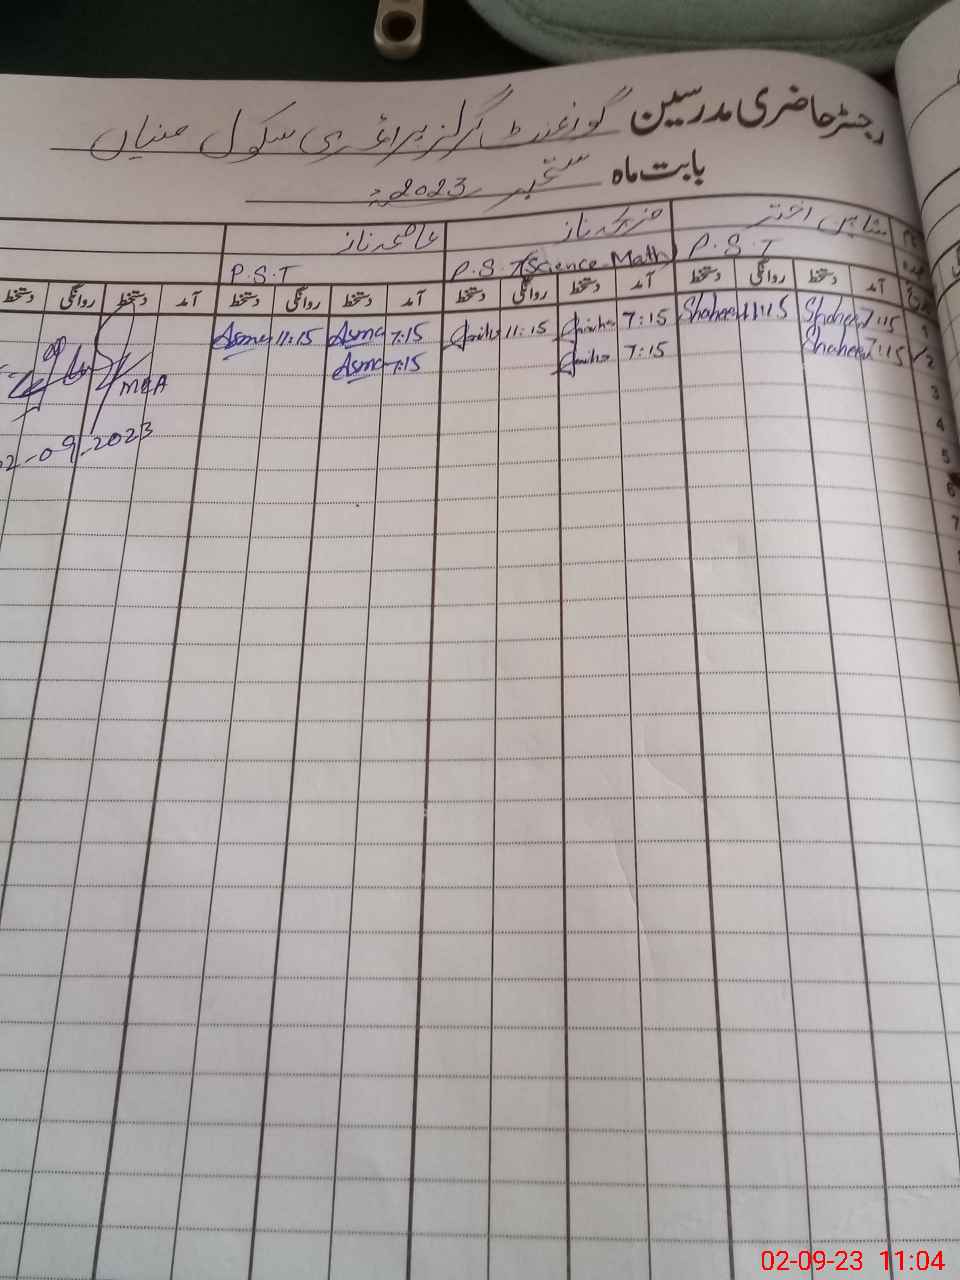 رجسٹر حاضری مدرسین گورنمنٹ گرلز پرائمری سکول منیاں
بابت ماہ ستمبر 2023ء
شاہین اختر عاصمہ ناز
P.S.T P.S.T Science Math P.S.T
آمد دستخط روانگی دستخط آمد دستخط روانگی دستخط آمد دستخط روانگی دستخط آمد دستخط روانگی دستخط
1 7:15 Shaheen 11:15 Shaheen 7:15 11:15 7:15 Asma 11:15 Asma
2 7:15 Shaheen 7:15 7:15 Asma
MEA
02-09-2023
3
4
5
6
7
02-09-23 11:04